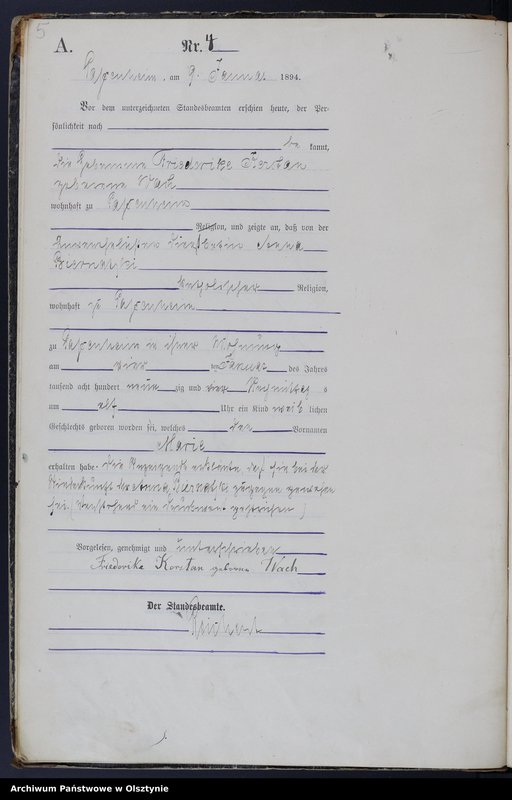 5
A.
Nr. 4
am 9. Januar 1894.
Vor dem unterzeichneten Standesbeamten erschien heute, der Per-
sönlichkeit nach
be kannt,
die Hebamme Friederike Korstan
geborene Wach
wohnhaft zu
Religion, und zeigte an, daß von der
unverehelichten Dienstbotin Anna
katholischer Religion,
wohnhaft zu
zu in ihrer Wohnung
am vier ten Januar des Jahres
tausend acht hundert neun zig und vier Nachmittag s
um elf Uhr ein Kind weib lichen
Geschlechts geboren worden sei, welches den Vornamen
Marie
erhalten habe. Die Anzeigende erklärte, daß sie bei der
Niederkunft der Anna zugegen gewesen
sei. (Vorstehend ein Druckwort gestrichen)
Vorgelesen, genehmigt und unterschrieben
Friederike Korstan geborene Wach
Der Standesbeamte.
Archiwum Państwowe w Olsztynie